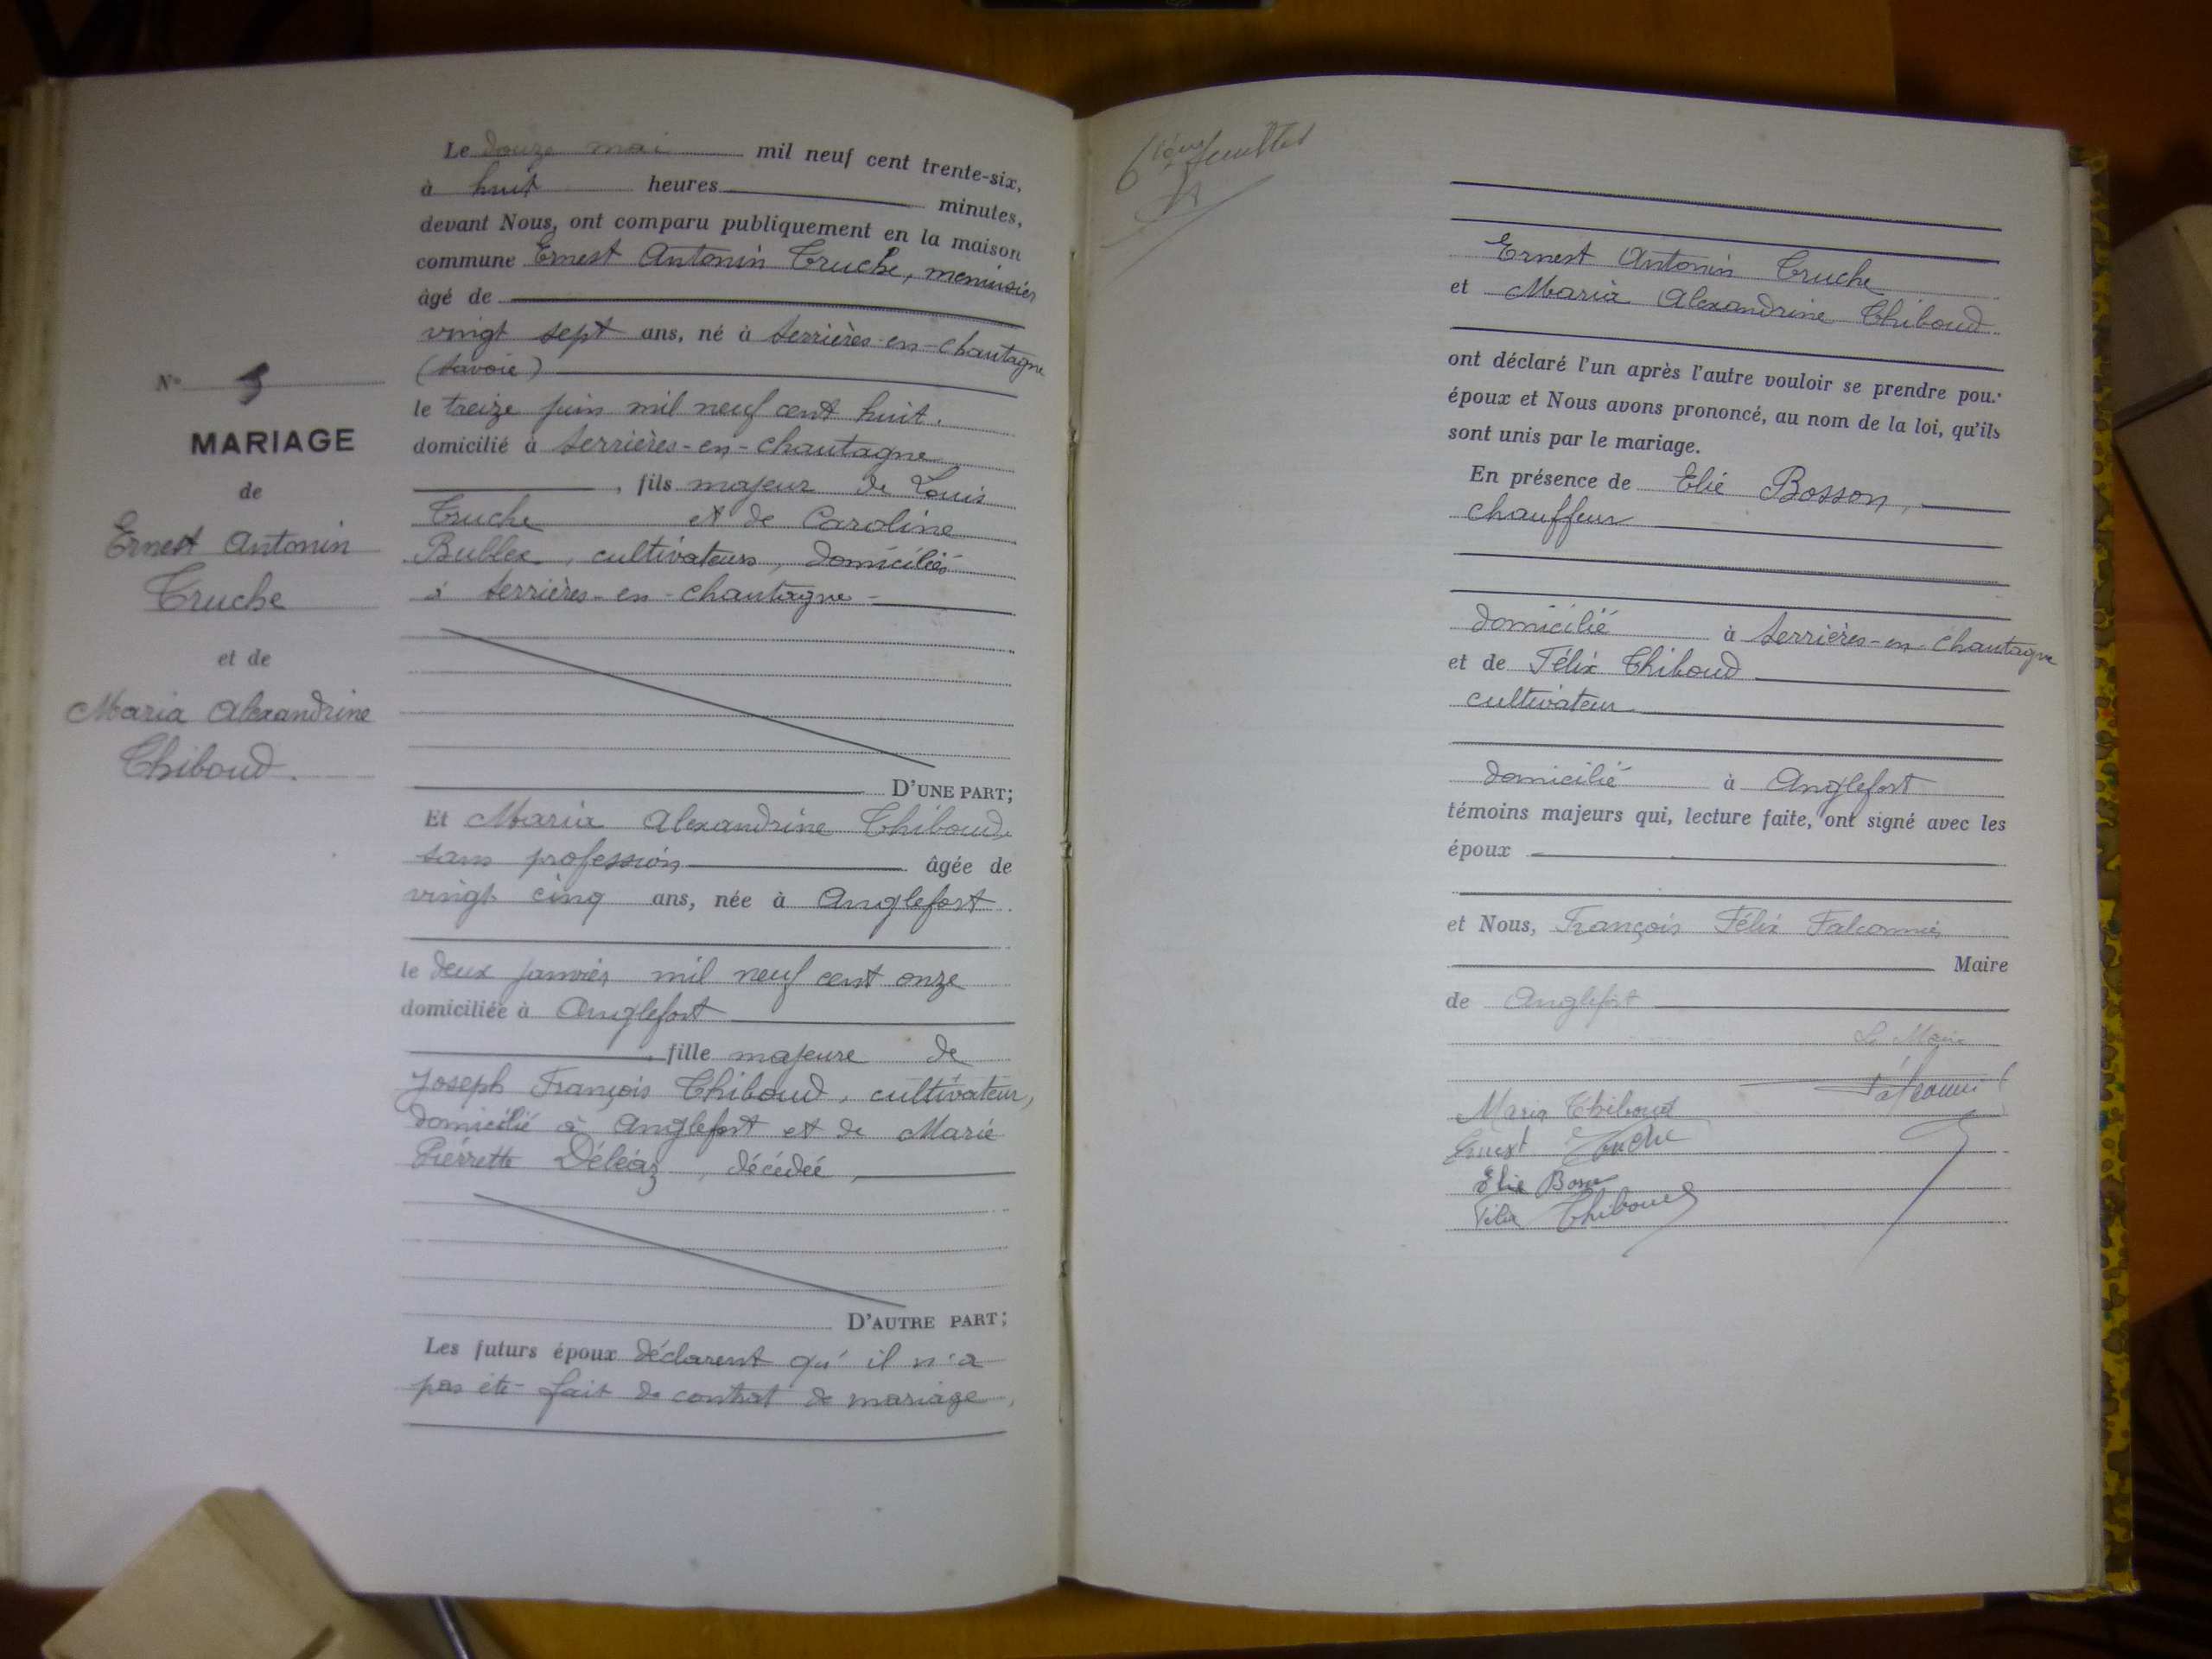 N° 5
MARIAGE
de
Ernest Antonin
Truche
et de
Maria Alexandrine
Thiboud.
Le douze mai mil neuf cent trente-six,
à huit heures minutes,
devant Nous, ont comparu publiquement en la maison
commune Ernest Antonin Truche, menuisier
âgé de
vingt sept ans, né à Serrières-en-Chautagne
(Savoie)
le treize juin mil neuf cent huit.
domicilié à Serrières-en-Chautagne
, fils majeur de Louis
Truche et de Caroline
Bullex, cultivateurs, domiciliés
à Serrières-en-Chautagne
D'UNE PART;
Et Maria Alexandrine Thiboud,
sans profession âgée de
vingt cinq ans, née à Anglefort
le deux janvier mil neuf cent onze
domiciliée à Anglefort
, fille majeure de
Joseph François Thiboud, cultivateur,
domicilié à Anglefort et de Marie
Pierrette Déléaz, décédée,
D'AUTRE PART;
Les futurs époux déclarent qu'il n'a
pas été fait de contrat de mariage,
6ième feuillet
Ernest Antonin Truche
et Maria Alexandrine Thiboud
ont déclaré l'un après l'autre vouloir se prendre pour
époux et Nous avons prononcé, au nom de la loi, qu'ils
sont unis par le mariage.
En présence de Elie Bosson,
chauffeur
domicilié à Serrières-en-Chautagne
et de Félix Thiboud
cultivateur
domicilié à Anglefort
témoins majeurs qui, lecture faite, ont signé avec les
époux
et Nous, François Félix Falconnier
Maire
de Anglefort
Le Maire
Maria Thiboud
Ernest Truche
Elie Bosson
Félix Thiboud